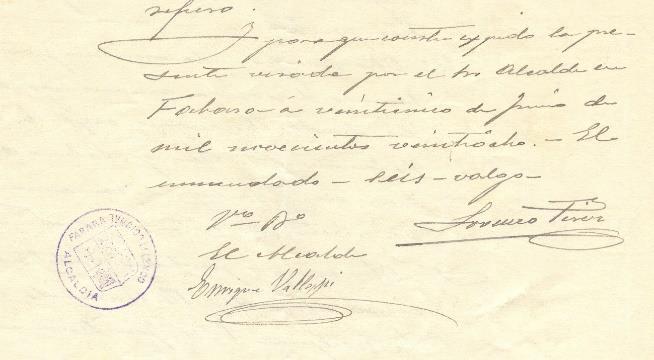 refiero.
Y para que conste expido la pre-
sente visada por el Sr Alcalde en
Fabara á veinticinco de Junio de
mil novecientos veintiocho. - El
enmendado - seis - valga -
Vº Bº
El Alcalde
Enrique
Lorenzo
FABARA
ALCALDIA